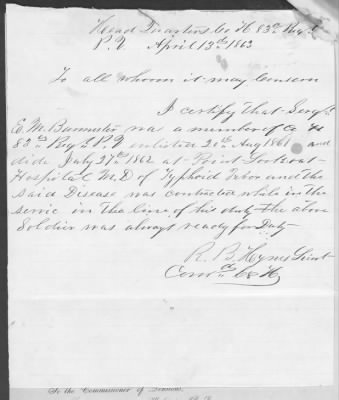 Head Quarters Co H 83d Reg't
P.V. April 13th 1863
To all whom it may Concern
I certify that Serg't
E. M. Burmister was a member of Co H
83d Reg't P.V enlisted 20th Aug 1861 and
dide July 27th 1862 at Point Lookout
Hospital M.D of Typhoid Fever and the
said Disease was contracted while in the
servic in the line of his duty the above
Soldier was always ready for Duty
R. B. Hynes Lieut
Comdg Co H
To the Commissioner of Pensions,